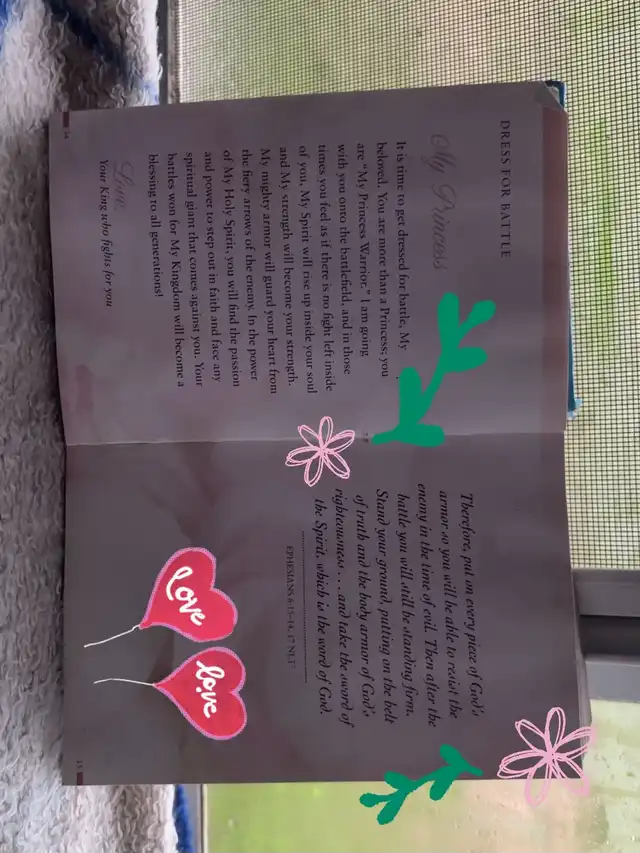 DRESS FOR BATTLE
My Princess
It is time to get dressed for battle, My
beloved. You are more than a Princess; you
are "My Princess Warrior." I am going
with you onto the battlefield, and in those
times you feel as if there is no fight left inside
of you, My Spirit will rise up inside your soul
and My strength will become your strength.
My mighty armor will guard your heart from
the fiery arrows of the enemy. In the power
of My Holy Spirit, you will find the passion
and power to step out in faith and face any
spiritual giant that comes against you. Your
battles won for My Kingdom will become a
blessing to all generations!
Love,
Your King who fights for you
14
Therefore, put on every piece of God's
armor so you will be able to resist the
enemy in the time of evil. Then after the
battle you will still be standing firm.
Stand your ground, putting on the belt
of truth and the body armor of God's
righteousness . . . and take the sword of
the Spirit, which is the word of God.
EPHESIANS 6:13–14, 17 NLT
Love
Love
15